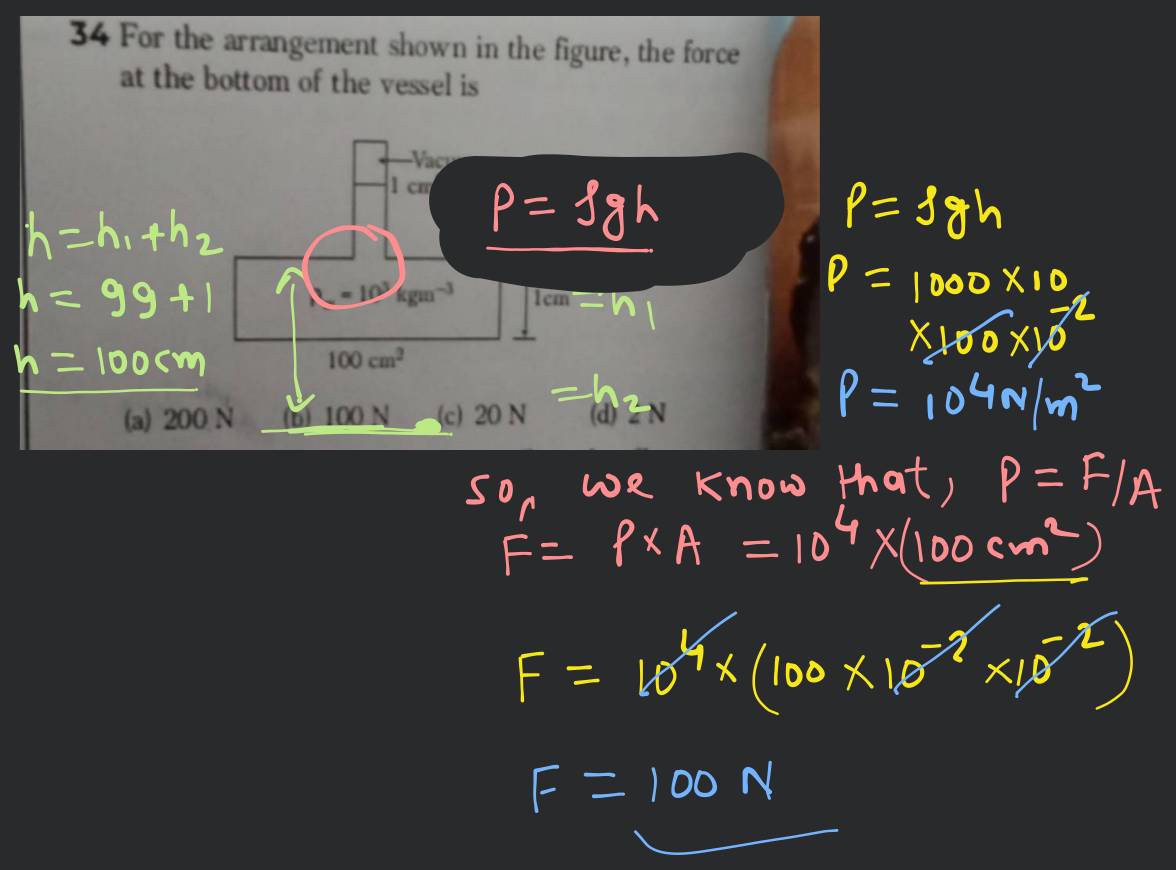 34 For the arrangement shown in the figure, the force
at the bottom of the vessel is
1 cm
P = ρgh
h = h₁ + h₂
h = 99 + 1
h = 100 cm
= 10³ kgm⁻³
1cm = h₁
100 cm²
= h₂
(a) 200 N (b) 100 N (c) 20 N (d) 2 N
P = ρgh
P = 1000 × 10
× 100 × 10⁻²
P = 10⁴ N/m²
so, we know that, P = F/A
F = P × A = 10⁴ × (100 cm²)
F = 10⁴ × (100 × 10⁻² × 10⁻²)
F = 100 N